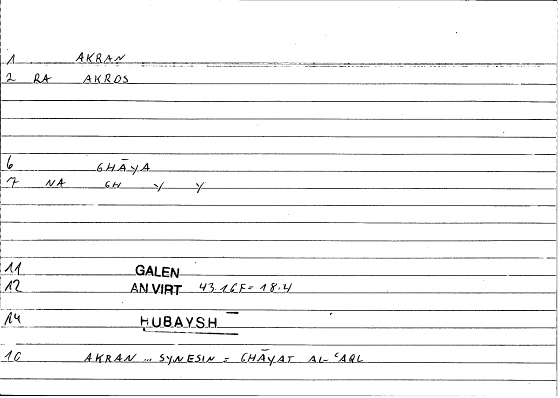 1 AKRAN
2 RA AKROS
6 GHĀYA
7 NA GH Y Y
11 GALEN
12 AN.VIRT 43.16 F = 18.4
14 HUBAYSH
16 AKRAN ... SYNESIN = GHĀYAT AL-ʿAQL